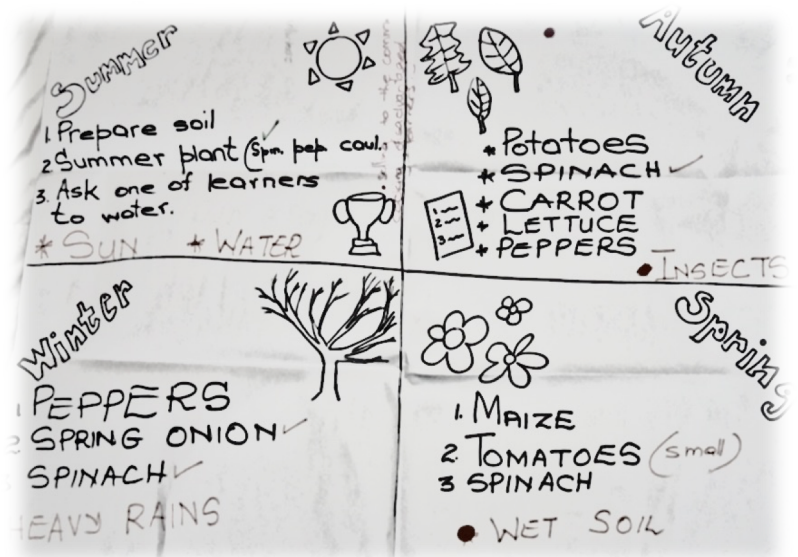 Summer
1. Prepare soil
2 Summer plant (Spin. pep. caul.
3. Ask one of learners
to water.
* SUN * WATER
Autumn
* Potatoes
* SPINACH ✓
* CARROT
+ LETTUCE
+ PEPPERS
1
2
3
• INSECTS
Winter
1 PEPPERS
2 SPRING ONION ✓
SPINACH ✓
HEAVY RAINS
Spring
1. MAIZE
2. TOMATOES (small)
3 SPINACH
• WET SOIL